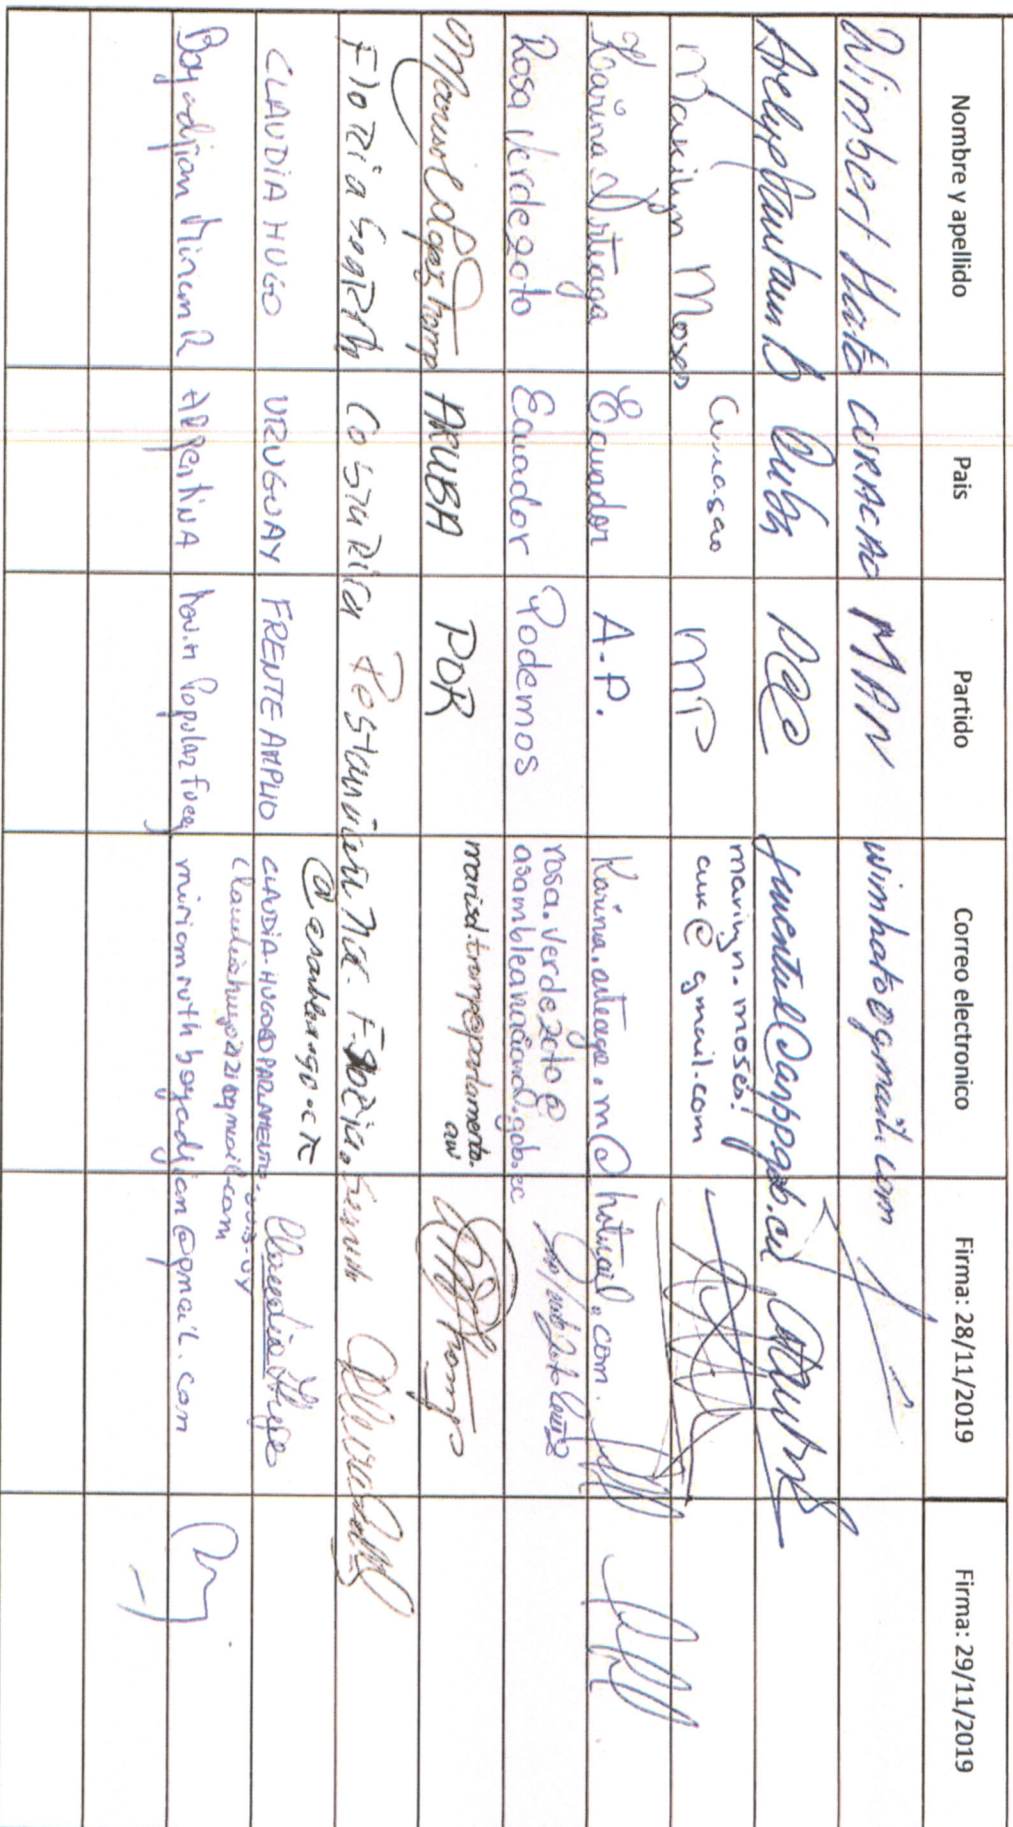 Nombre y apellido Pais Partido Correo electronico Firma: 28/11/2019 Firma: 29/11/2019
Winsbert Hato CURACAO MAN wimhato@gmail.com
Arelys Cuba PCC @anpp.gob.cu
Marilyn Moses Curasao MP marilyn.moses!
cur@gmail.com
Karina Arteaga Ecuador A.P. Karina.arteaga.m@hotmail.com.
Rosa Verdezoto Ecuador Podemos rosa.verdezoto@
asambleanacional.gob.ec
Marisol Lopez Tromp ARUBA POR marisol.tromp@parlamento.
aw
Costa Rica
CLAUDIA HUGO URUGUAY FRENTE AMPLIO CLAUDIA.HUGO@PARLAMENTO.GUB.UY Claudia Hugo
@gmail.com
Boyadjian Miriam R ARgentiNA Mov.n Popular Fueg miriamruthboyadjian@gmail.com